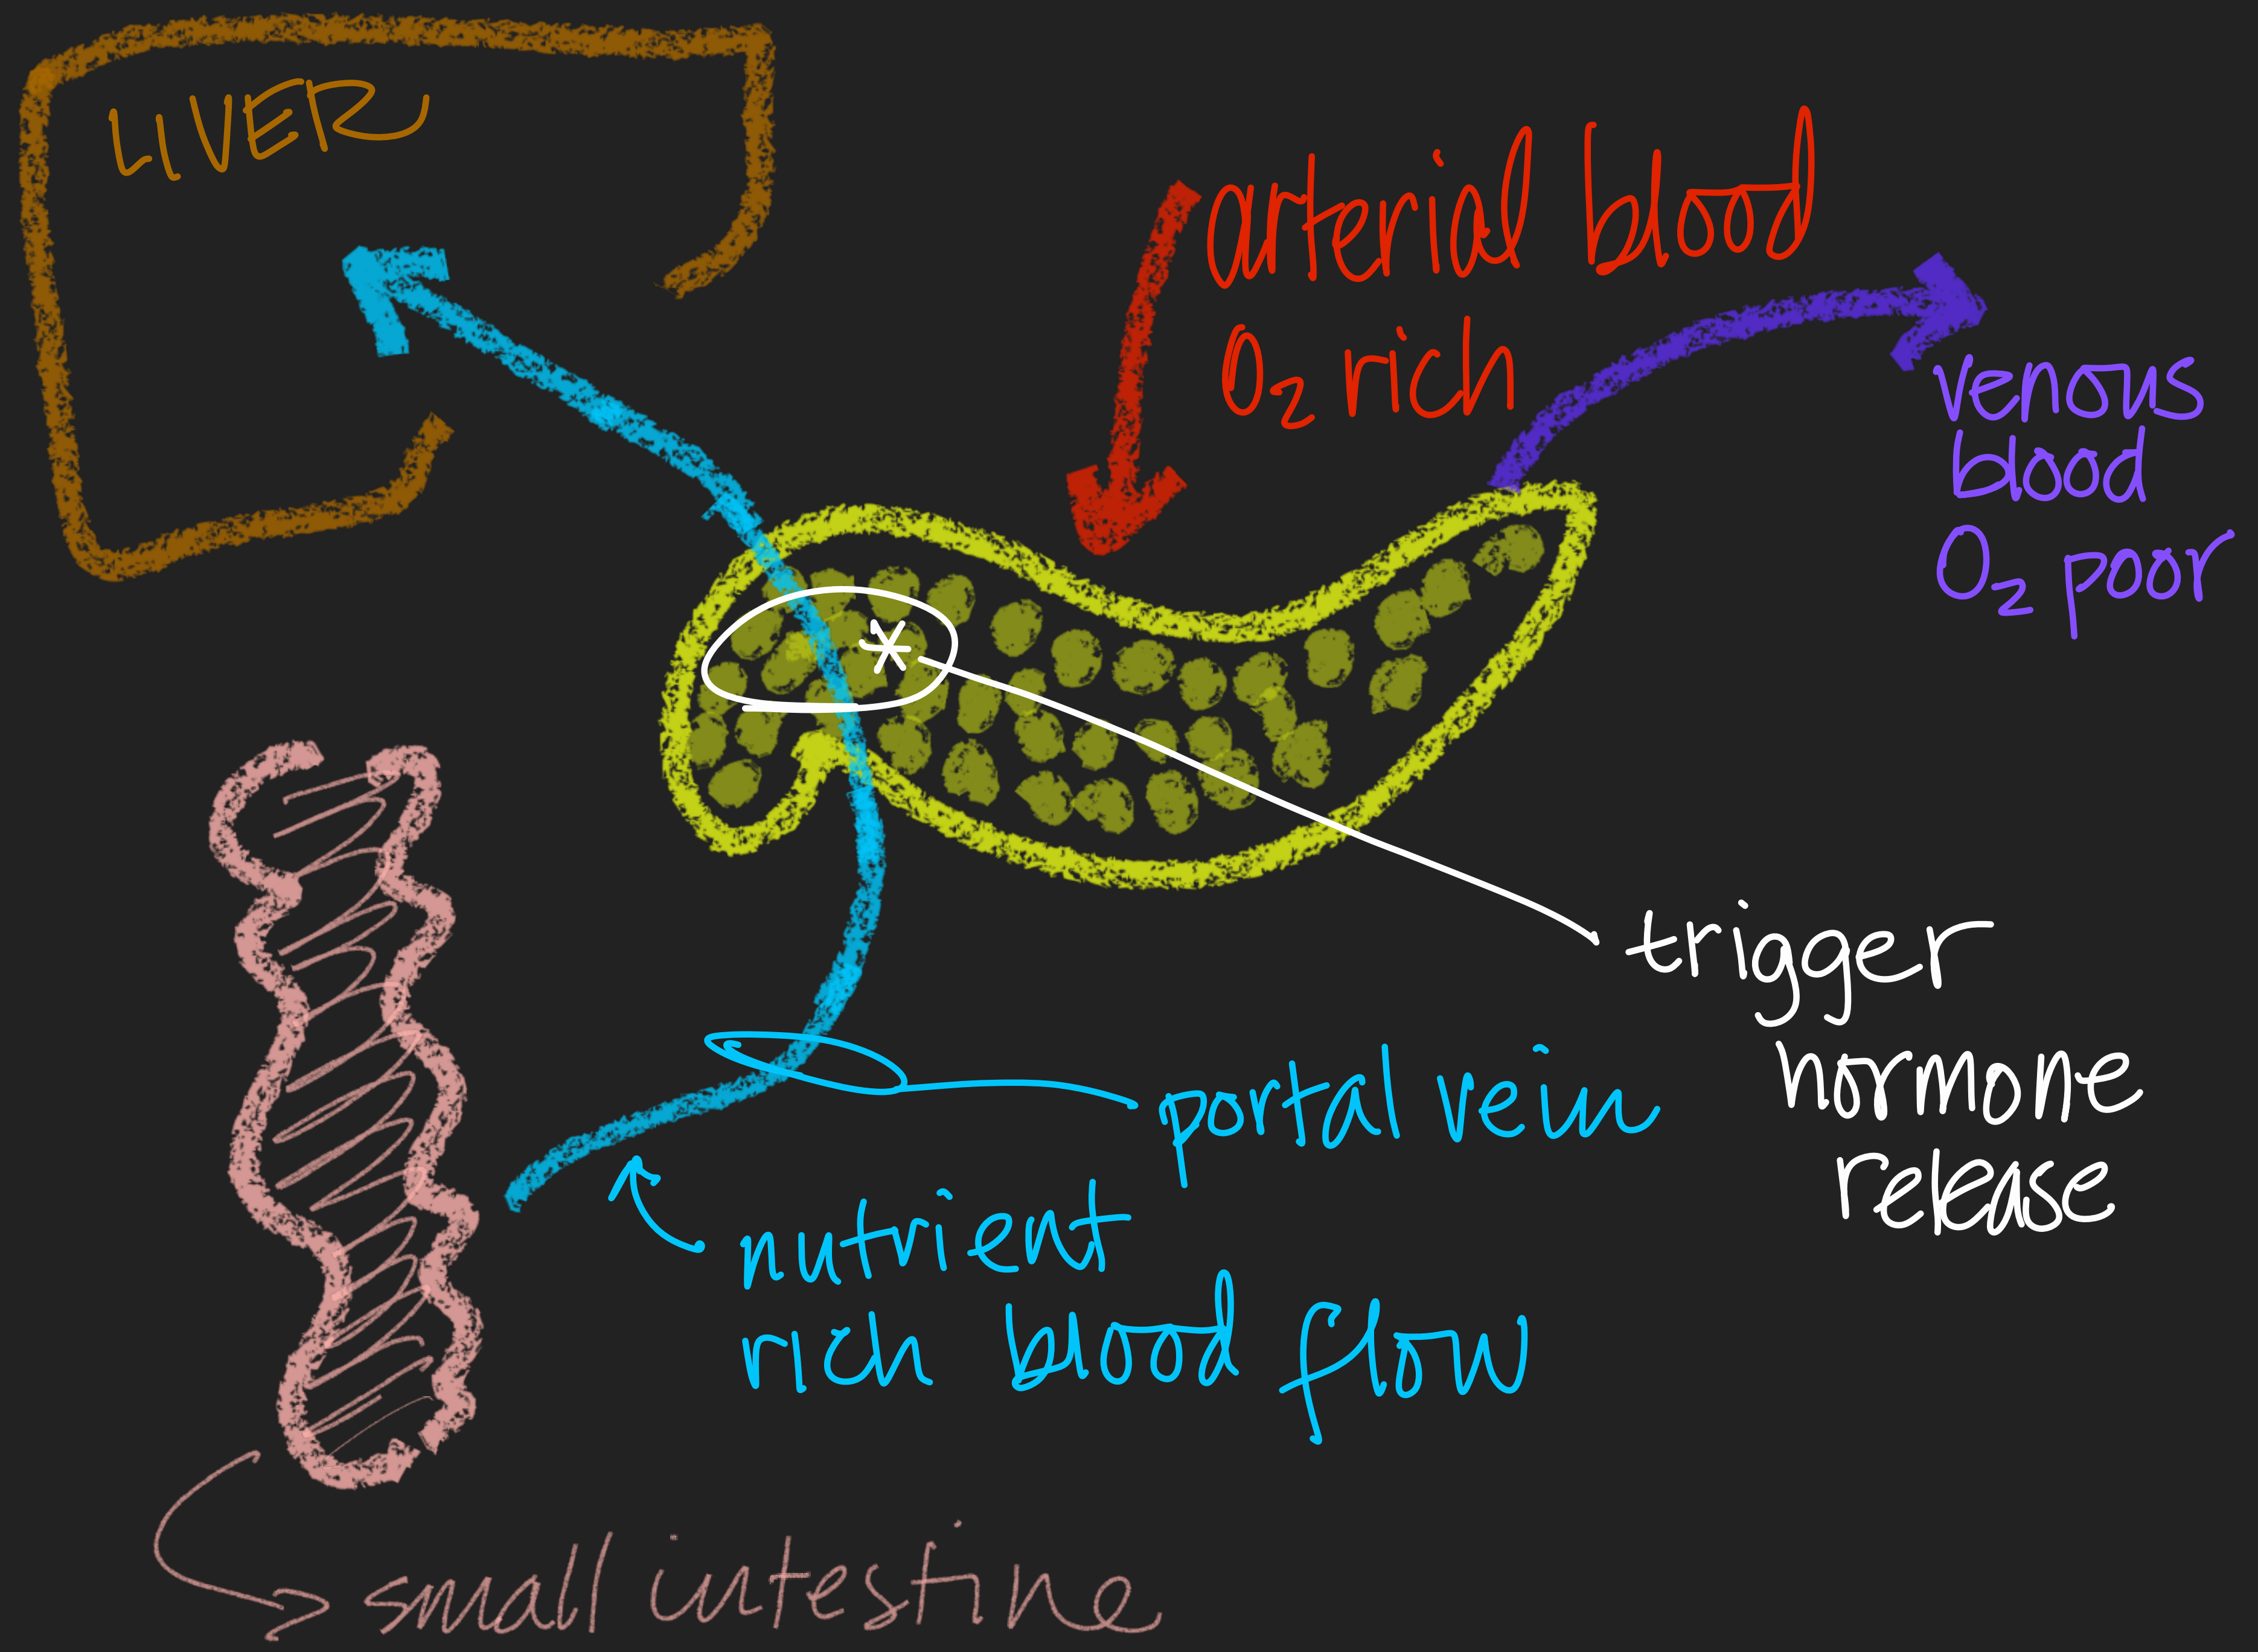 LIVER
arterial blood
O₂ rich
venous
blood
O₂ poor
*
trigger
hormone
release
portal vein
nutrient
rich blood flow
small intestine